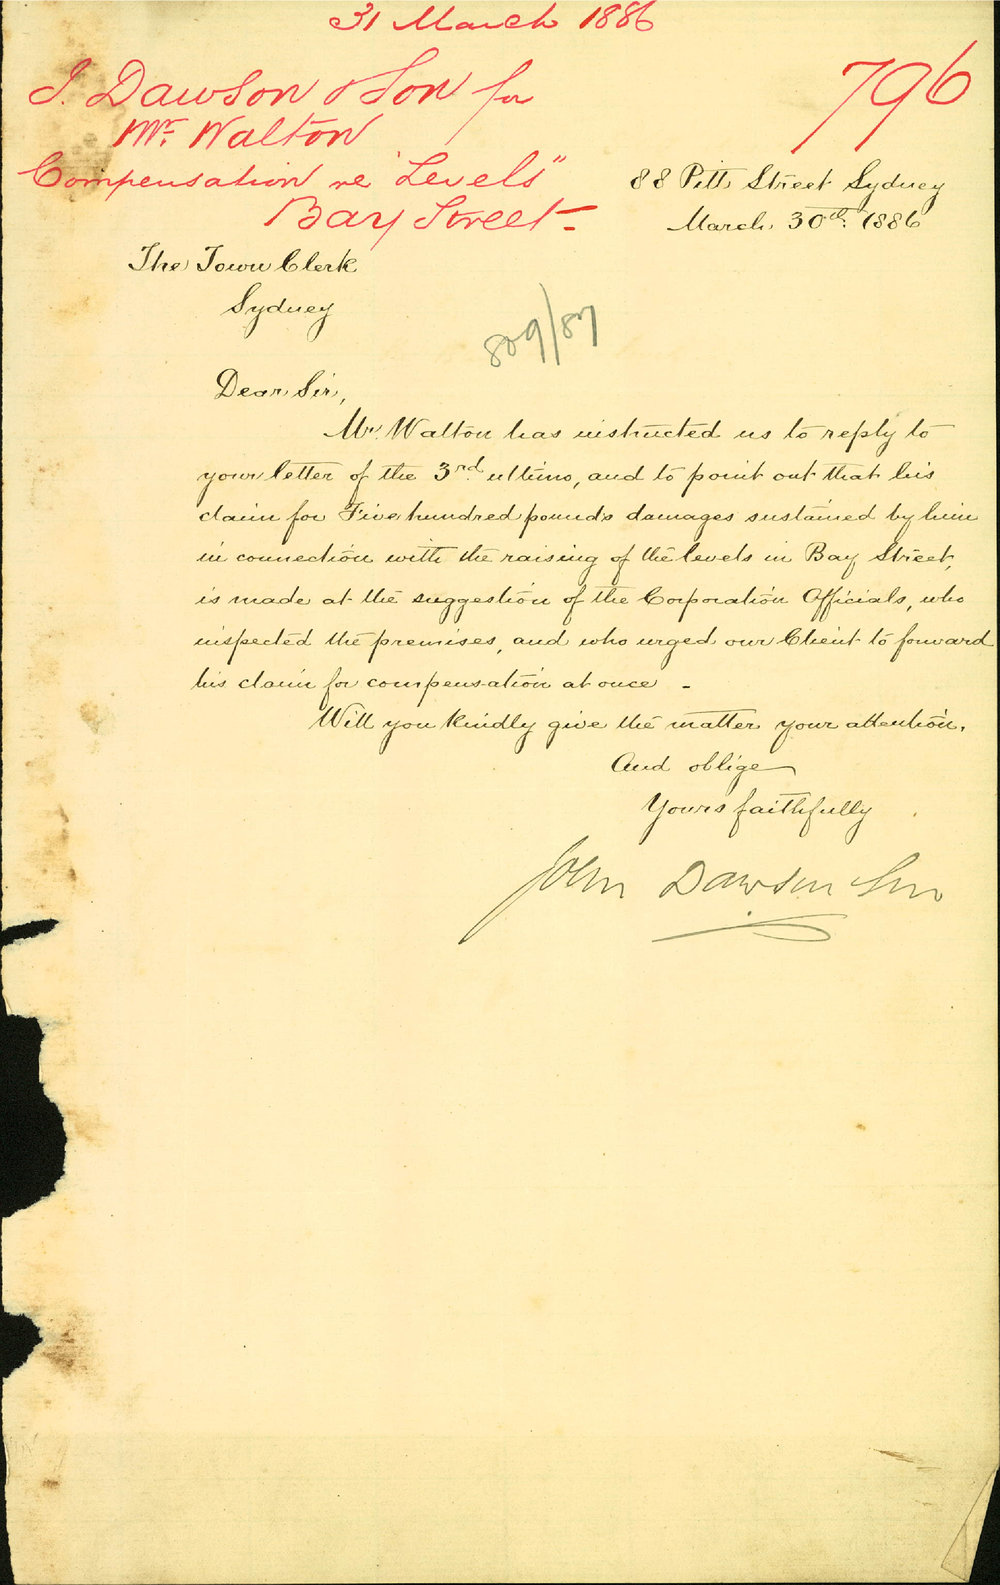 31 March 1886
J. Dawson & Son for
Mr. Walton
Compensation re "Levels"
Bay Street -
796
88 Pitt Street Sydney
March 30th. 1886
The Town Clerk
Sydney
829/87
Dear Sir,
Mr. Walton has instructed us to reply to
your letter of the 3rd. ultimo, and to point out that his
claim for Five hundred pounds damages sustained by him
in connection with the raising of the levels in Bay Street,
is made at the suggestion of the Corporation Officials, who
inspected the premises, and who urged our Client to forward
his claim for compensation at once -
Will you kindly give the matter your attention.
And oblige
Yours faithfully
John Dawson Son